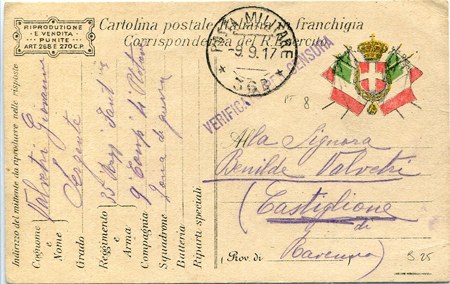 RIPRODUZIONE
E VENDITA
PUNITE
ART. 268 E 270 C.P.
Cartolina postale italiana in franchigia
Corrispondenza del R. Esercito
POSTA MILITARE
9.9.17
VERIFICATO CENSURA
PF 8
Indirizzo del mittente da riprodurre nelle risposte
Cognome e Nome Valvetri Giovanni
Grado Sergente
Reggimento e Arma 35 Regg Fant
Compagnia 9 Comp
Squadrone Zona di guerra
Batteria
Riparti speciali
Alla Signora
Benilde Valvetri
Castiglione
di
(Prov. di Ravenna)